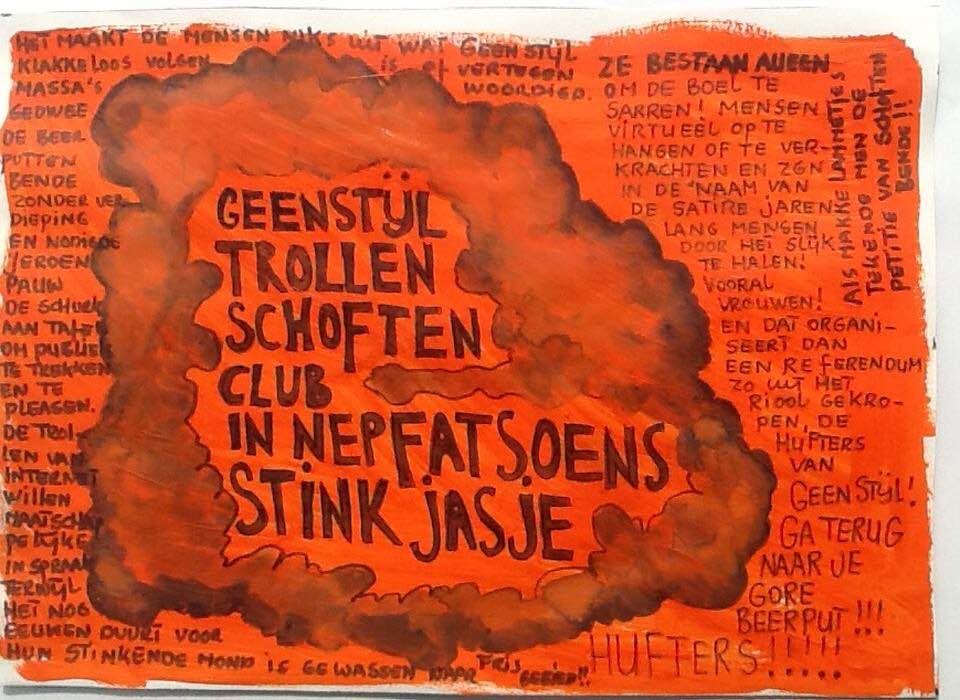 HET MAAKT DE MENSEN NIKS UIT WAT GEEN STIJL
KLAKKELOOS VOLGEN is of VERTEGEN
WOORDIGD.
MASSA'S
GEDWEE
DE BEER
PUTTEN
BENDE
ZONDER VER
DIEPING
EN NODIGDE
JEROEN
PAUW
DE SCHURK
AAN TAFEL
OM PUBLIEK
TE TREKKEN
EN TE
PLEASEN.
DE TROL-
LEN VAN
INTERNET
WILLEN
MAATSCHAP
PELIJKE
INSPRAAK
TERWIJL
HET NOG
EEUWEN DUURT VOOR
HUN STINKENDE MOND IS GEWASSEN NAAR FRIS
GEBIED!!
GEENSTIJL
TROLLEN
SCHOFTEN
CLUB
IN NEPFATSOENS
STINK JASJE
ZE BESTAAN ALLEEN
OM DE BOEL TE
SARREN! MENSEN
VIRTUEEL OP TE
HANGEN OF TE VER-
KRACHTEN EN ZGN
IN DE NAAM VAN
DE SATIRE JAREN
LANG MENSEN
DOOR HET SLIJK
TE HALEN!
VOORAL
VROUWEN!
EN DAT ORGANI-
SEERT DAN
EEN REFERENDUM
ZO UIT HET
RIOOL GEKRO-
PEN, DE
HUFTERS
VAN
GEENSTIJL!
GA TERUG
NAAR JE
GORE
BEERPUT!!!
HUFTERS!!!!!
ALS MAKKE LAMMETJES
TEKENDE MEN DE
PETITIE VAN SCHOFTEN
BENDE!!